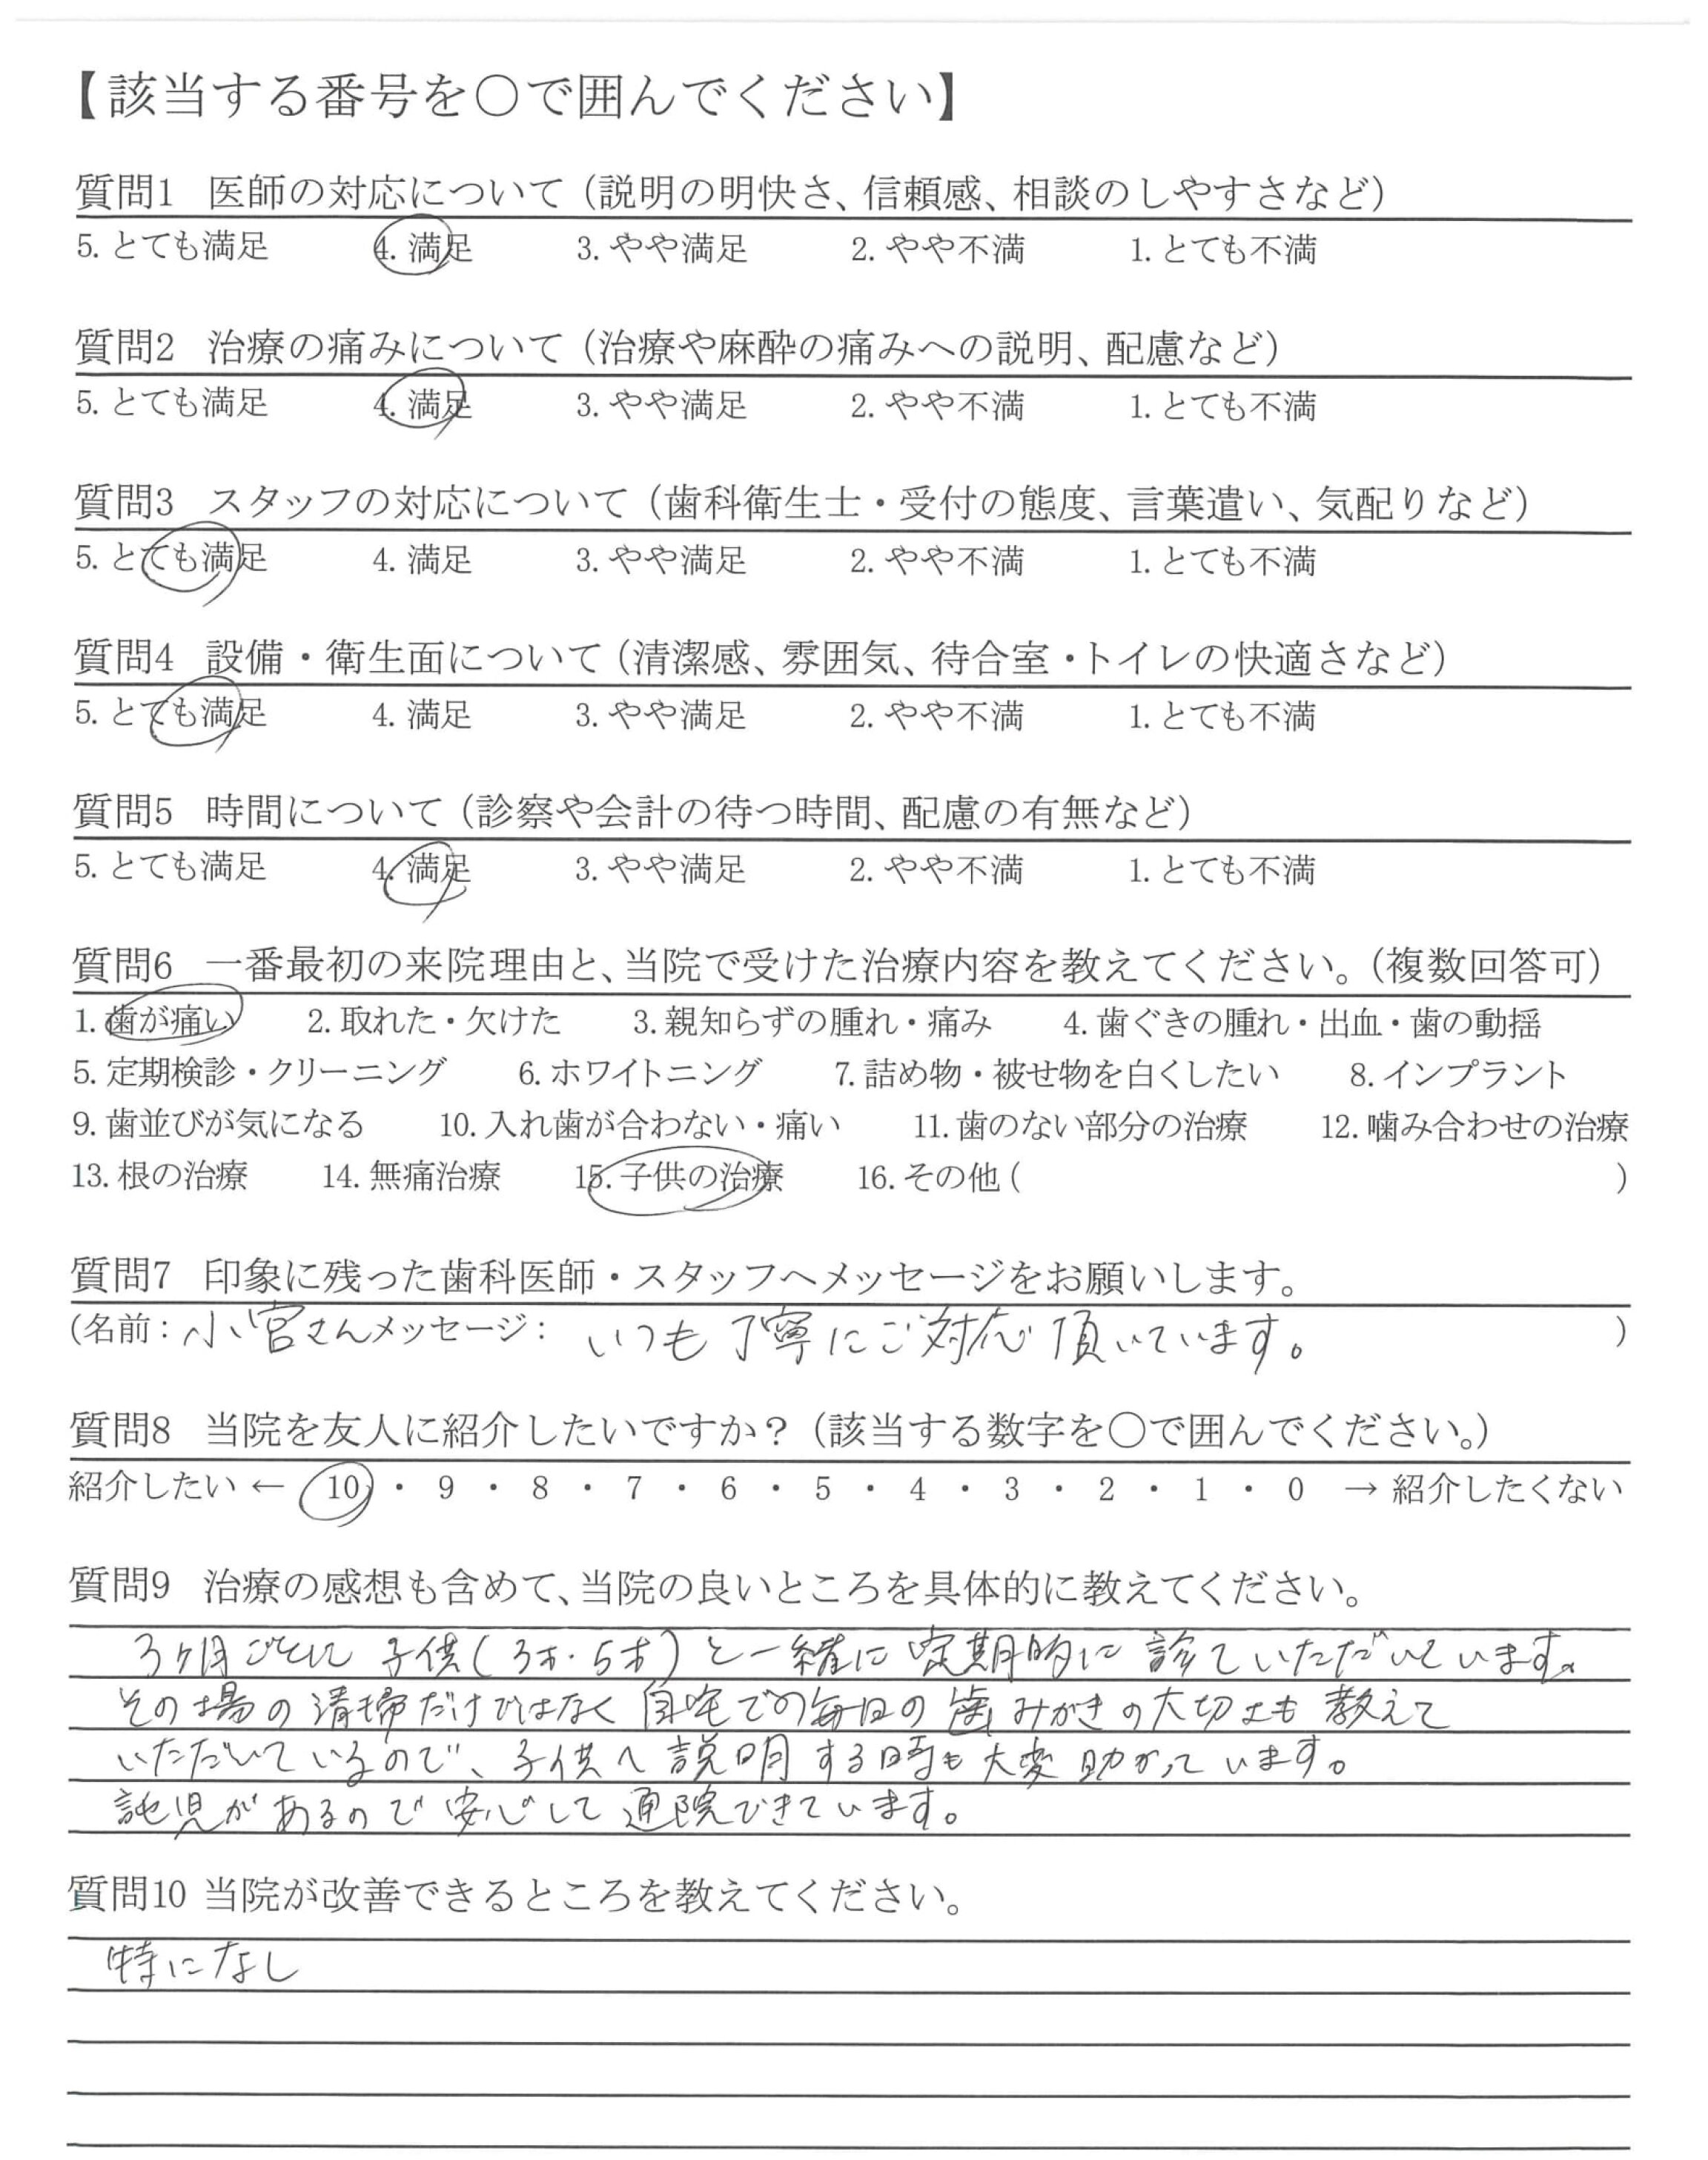 【該当する番号を〇で囲んでください】
質問1 医師の対応について（説明の明快さ、信頼感、相談のしやすさなど）
5. とても満足 4. 満足 3. やや満足 2. やや不満 1. とても不満
質問2 治療の痛みについて（治療や麻酔の痛みへの説明、配慮など）
5. とても満足 4. 満足 3. やや満足 2. やや不満 1. とても不満
質問3 スタッフの対応について（歯科衛生士・受付の態度、言葉遣い、気配りなど）
5. とても満足 4. 満足 3. やや満足 2. やや不満 1. とても不満
質問4 設備・衛生面について（清潔感、雰囲気、待合室・トイレの快適さなど）
5. とても満足 4. 満足 3. やや満足 2. やや不満 1. とても不満
質問5 時間について（診察や会計の待つ時間、配慮の有無など）
5. とても満足 4. 満足 3. やや満足 2. やや不満 1. とても不満
質問6 一番最初の来院理由と、当院で受けた治療内容を教えてください。（複数回答可）
1. 歯が痛い 2. 取れた・欠けた 3. 親知らずの腫れ・痛み 4. 歯ぐきの腫れ・出血・歯の動揺
5. 定期検診・クリーニング 6. ホワイトニング 7. 詰め物・被せ物を白くしたい 8. インプラント
9. 歯並びが気になる 10. 入れ歯が合わない・痛い 11. 歯のない部分の治療 12. 噛み合わせの治療
13. 根の治療 14. 無痛治療 15. 子供の治療 16. その他（ ）
質問7 印象に残った歯科医師・スタッフへメッセージをお願いします。
（名前：小宮さんメッセージ： いつも丁寧にご対応頂いています。 ）
質問8 当院を友人に紹介したいですか？（該当する数字を〇で囲んでください。）
紹介したい ← 10 ・ 9 ・ 8 ・ 7 ・ 6 ・ 5 ・ 4 ・ 3 ・ 2 ・ 1 ・ 0 → 紹介したくない
質問9 治療の感想も含めて、当院の良いところを具体的に教えてください。
3ヶ月ごとに 子供（3才・5才）と一緒に 定期的に 診ていただいています。
その場の清掃だけではなく 自宅での毎日の歯みがきの大切さも 教えて
いただいているので、子供へ説明する時も大変助かっています。
託児があるので安心して通院できています。
質問10 当院が改善できるところを教えてください。
特になし